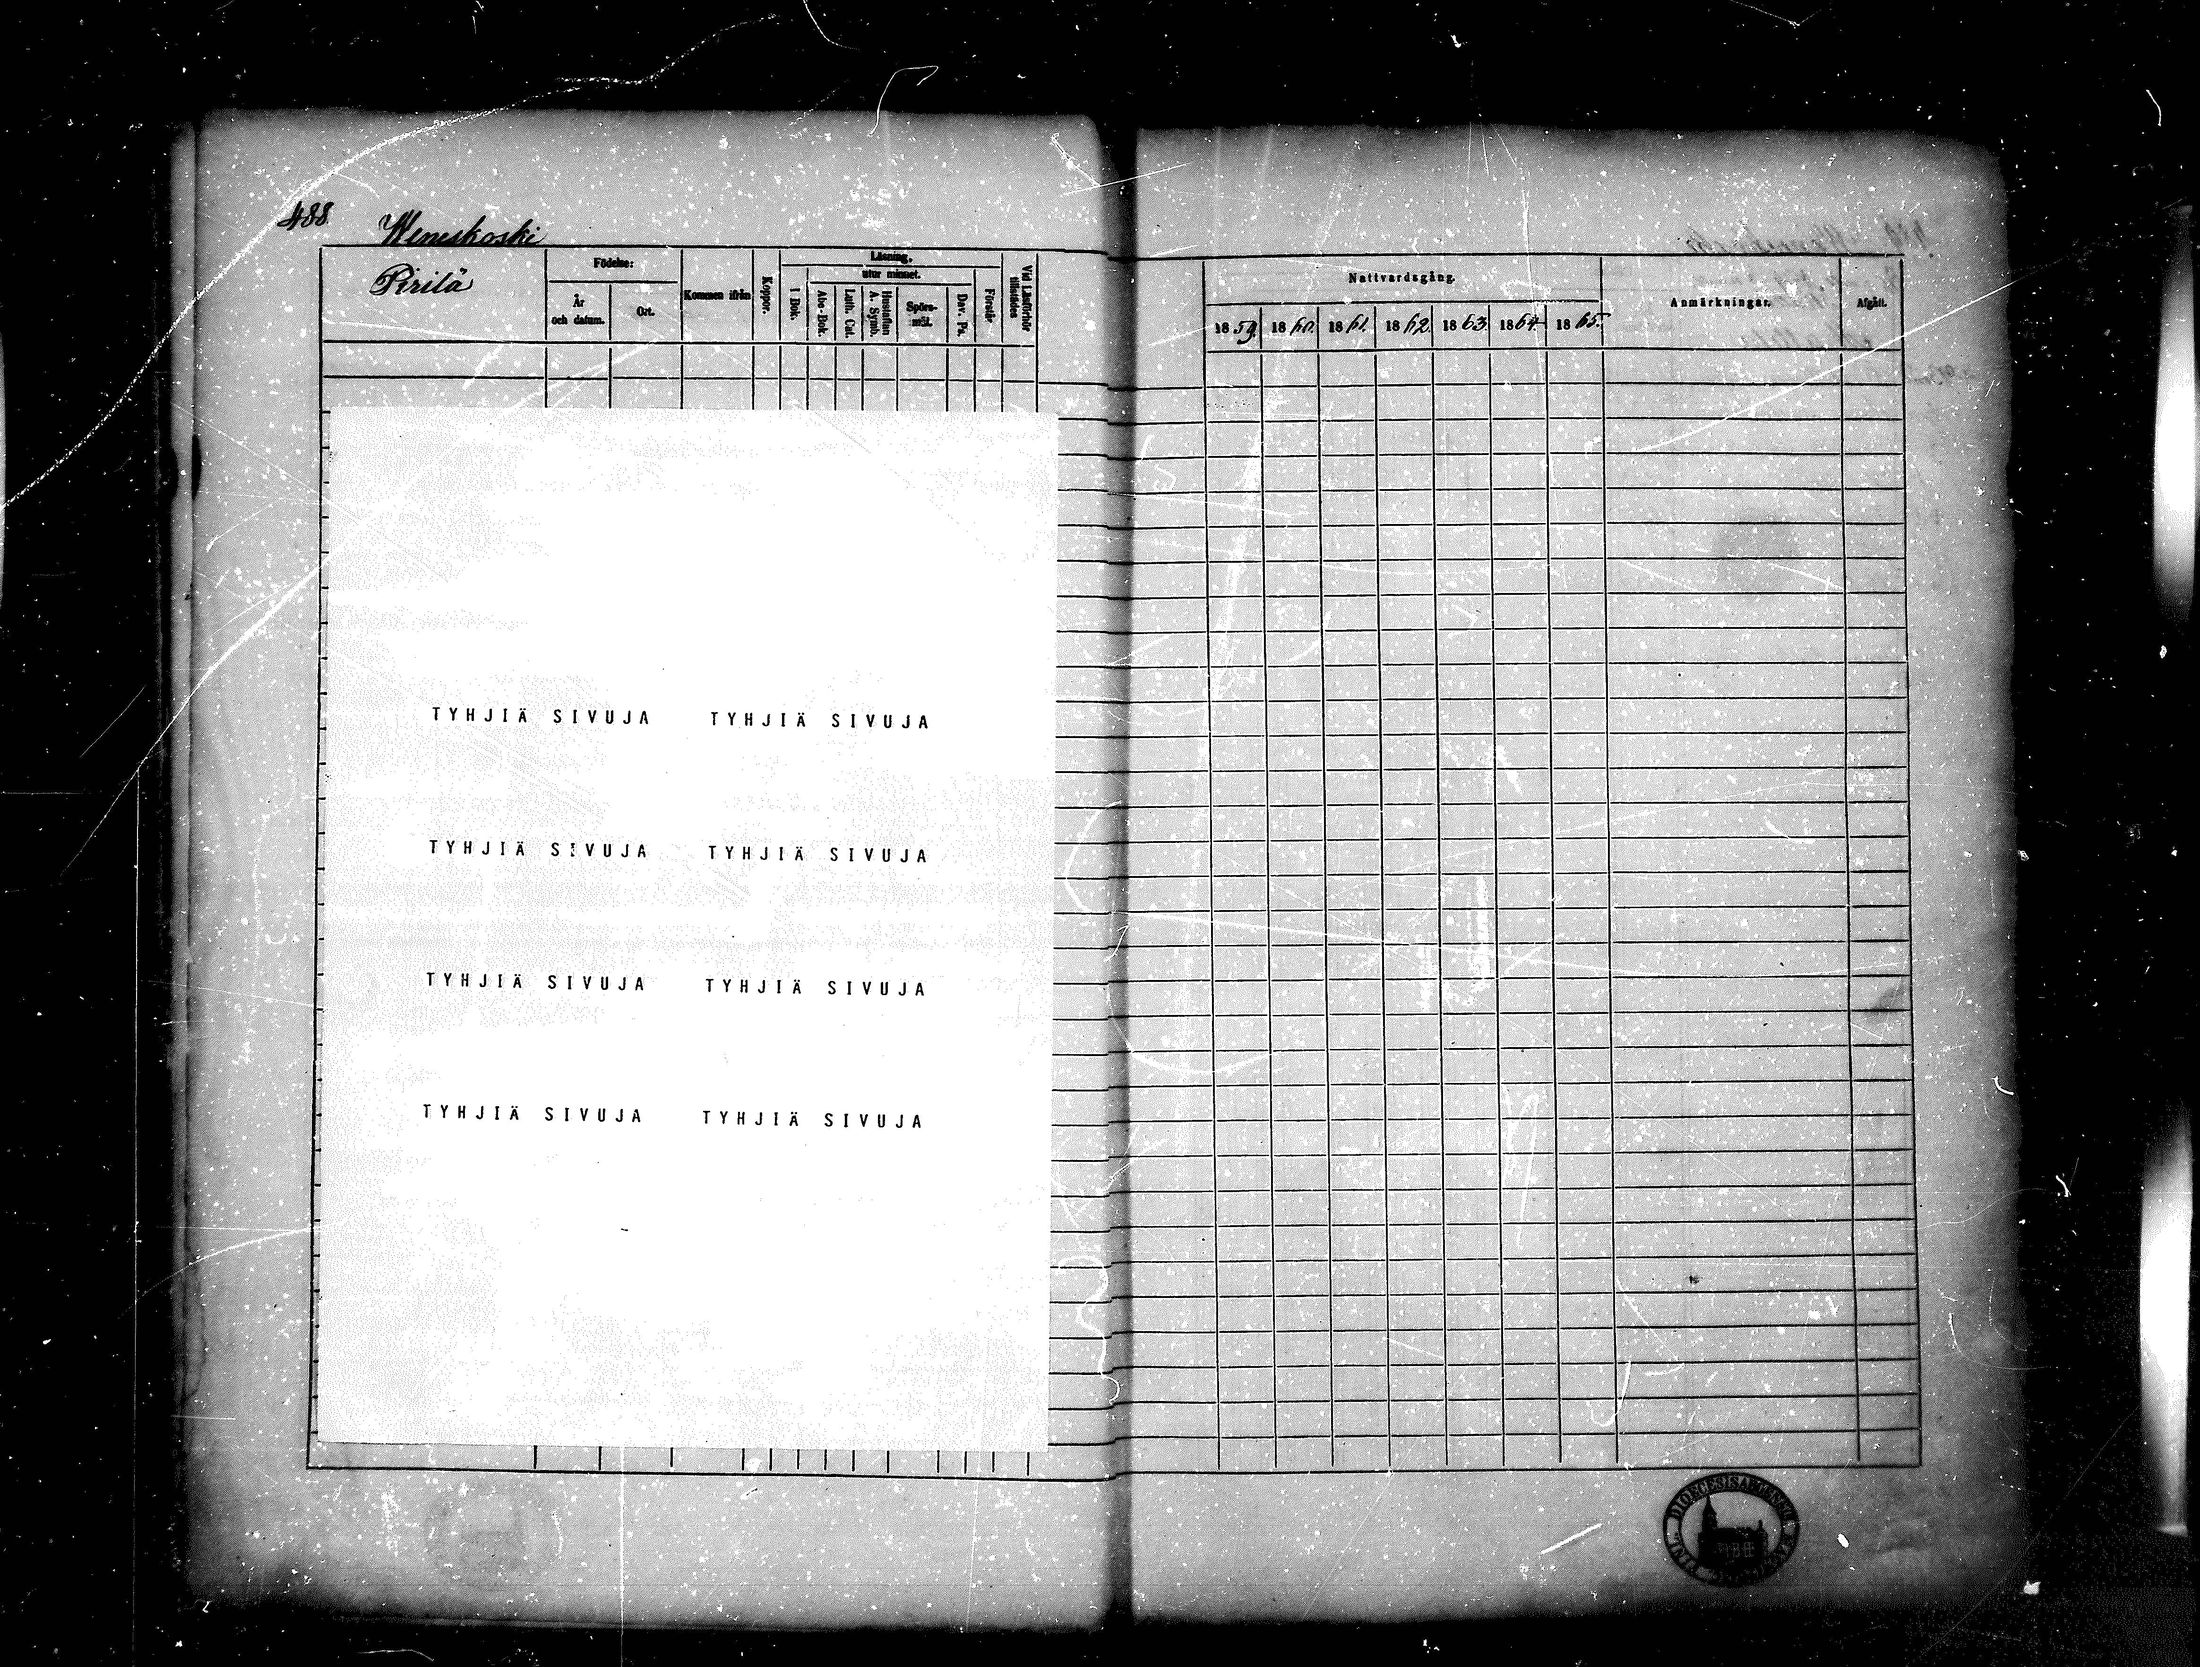 488.
Weneskoski
Pirilä
Födelse:
År
och datum.
Ort.
Kommen ifrån
Koppor.
Läsning,
utur minnet.
I Bok.
Abc-Bok.
Luth. Cat.
Hustaflan
A. Symb.
Spörs-
mål.
Dav. Ps.
Förstår
Vid Läsförhör
tillstädes
Nattvardsgång.
1859. 1860. 1861. 1862. 1863. 1864. 1865.
Anmärkningar.
Afgått.
TYHJIÄ SIVUJA TYHJIÄ SIVUJA
TYHJIÄ SIVUJA TYHJIÄ SIVUJA
TYHJIÄ SIVUJA TYHJIÄ SIVUJA
TYHJIÄ SIVUJA TYHJIÄ SIVUJA